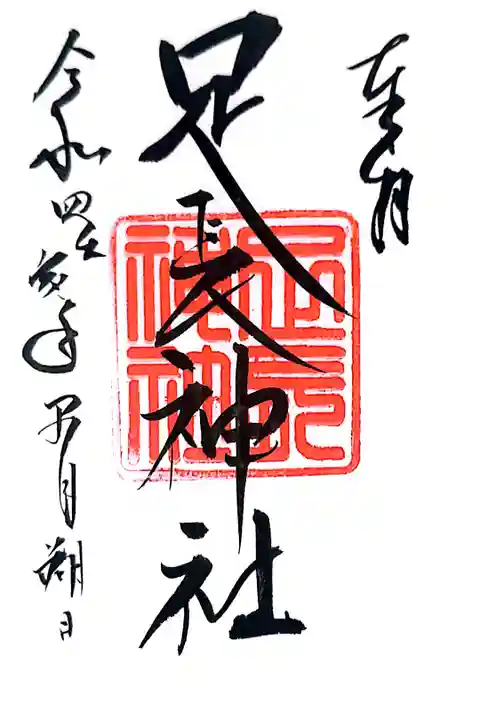 奉拝
足長神社
足長
神社
令和四 年 月朔日